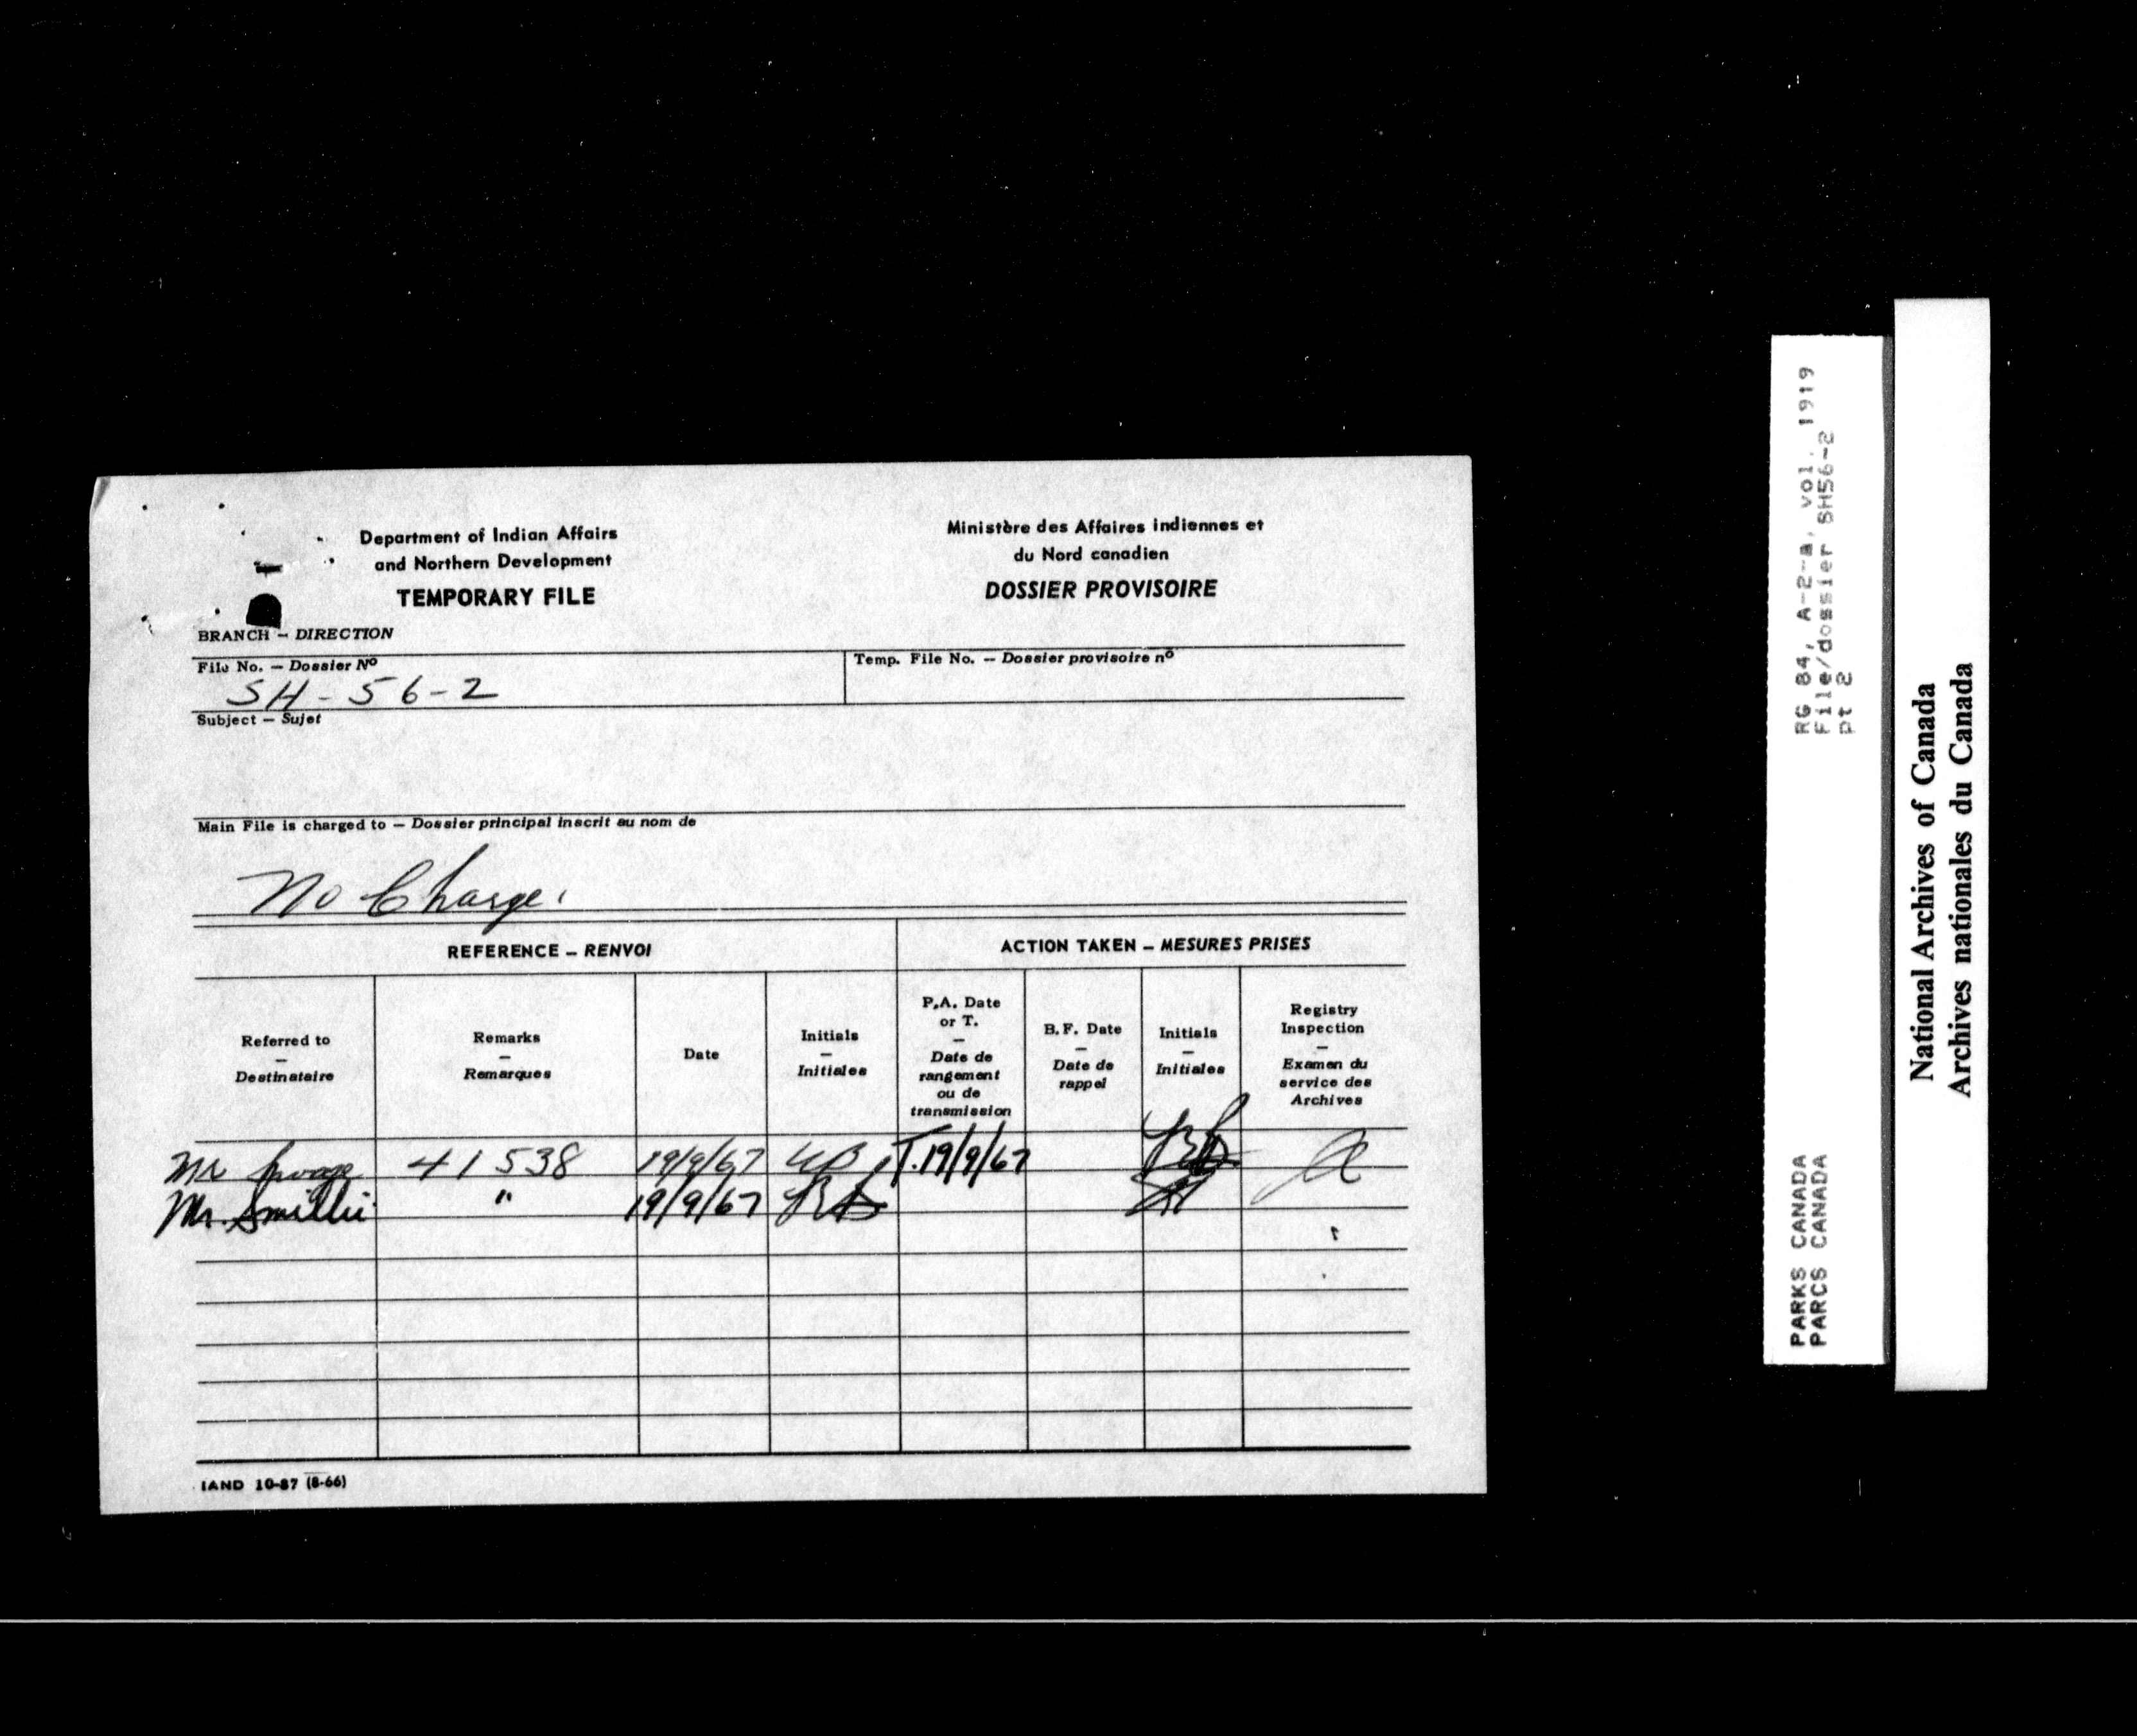 Department of Indian Affairs
and Northern Development
TEMPORARY FILE
Ministère des Affaires indiennes et
du Nord canadien
DOSSIER PROVISOIRE
BRANCH – DIRECTION
File No. – Dossier Nº
SH-56-2
Temp. File No. – Dossier provisoire nº
Subject – Sujet
Main File is charged to – Dossier principal inscrit au nom de
No Charge.
REFERENCE – RENVOI
ACTION TAKEN – MESURES PRISES
Referred to
–
Destinataire
Remarks
–
Remarques
Date
Initials
–
Initiales
P.A. Date
or T.
–
Date de
rangement
ou de
transmission
B.F. Date
–
Date de
rappel
Initials
–
Initiales
Registry
Inspection
–
Examen du
service des
Archives
Mr 41538 19/9/67 T.19/9/67
Mr. Smillie " 19/9/67
IAND 10-87 (8-66)
RG 84, A-2-a, vol. 1919
File/dossier SH56-2
pt 2
PARKS CANADA
PARCS CANADA
National Archives of Canada
Archives nationales du Canada